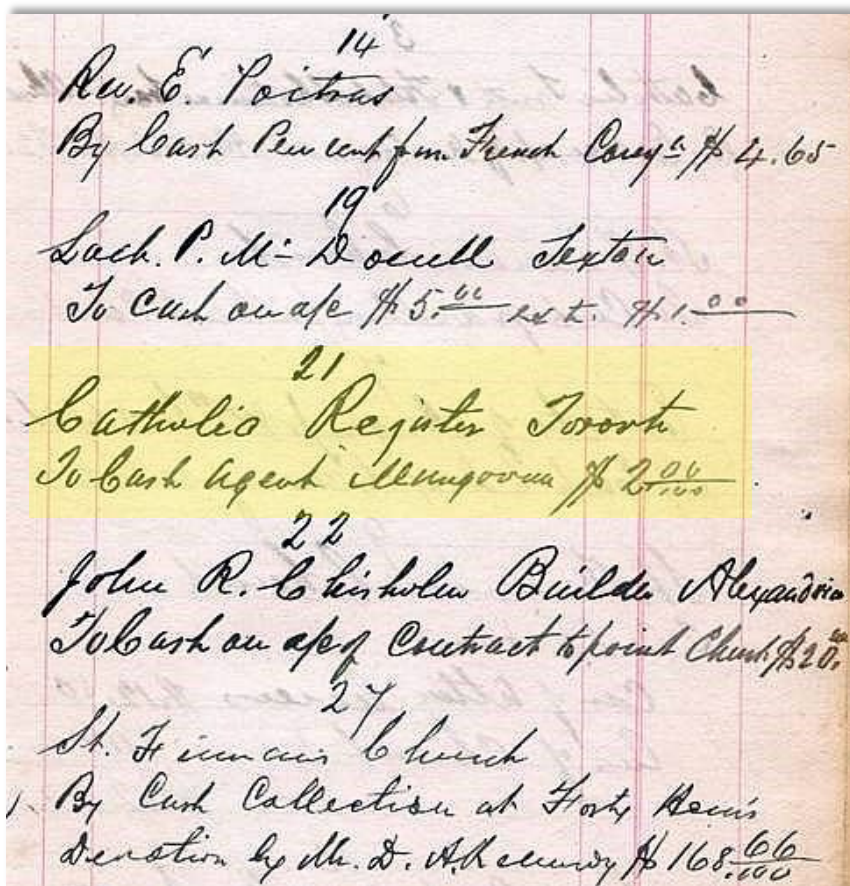 14
Rev. E. Poitras
By Cash Per cent from French Congn $ 4.65
19
Lach. P. McDonell Sexton
To Cash on a/c $ 5.00 ext. $ 1.00
21
Catholic Register Toronto
To Cash Agent Mungovan $ 2 00/100
22
John R. Chisholm Builder Alexandria
To Cash on a/c of Contract to point Church $ 20.00
27
St. Finnans Church
By Cash Collection at Forty Hours
Devotion by Mr. D. A. Kennedy $ 168 66/100